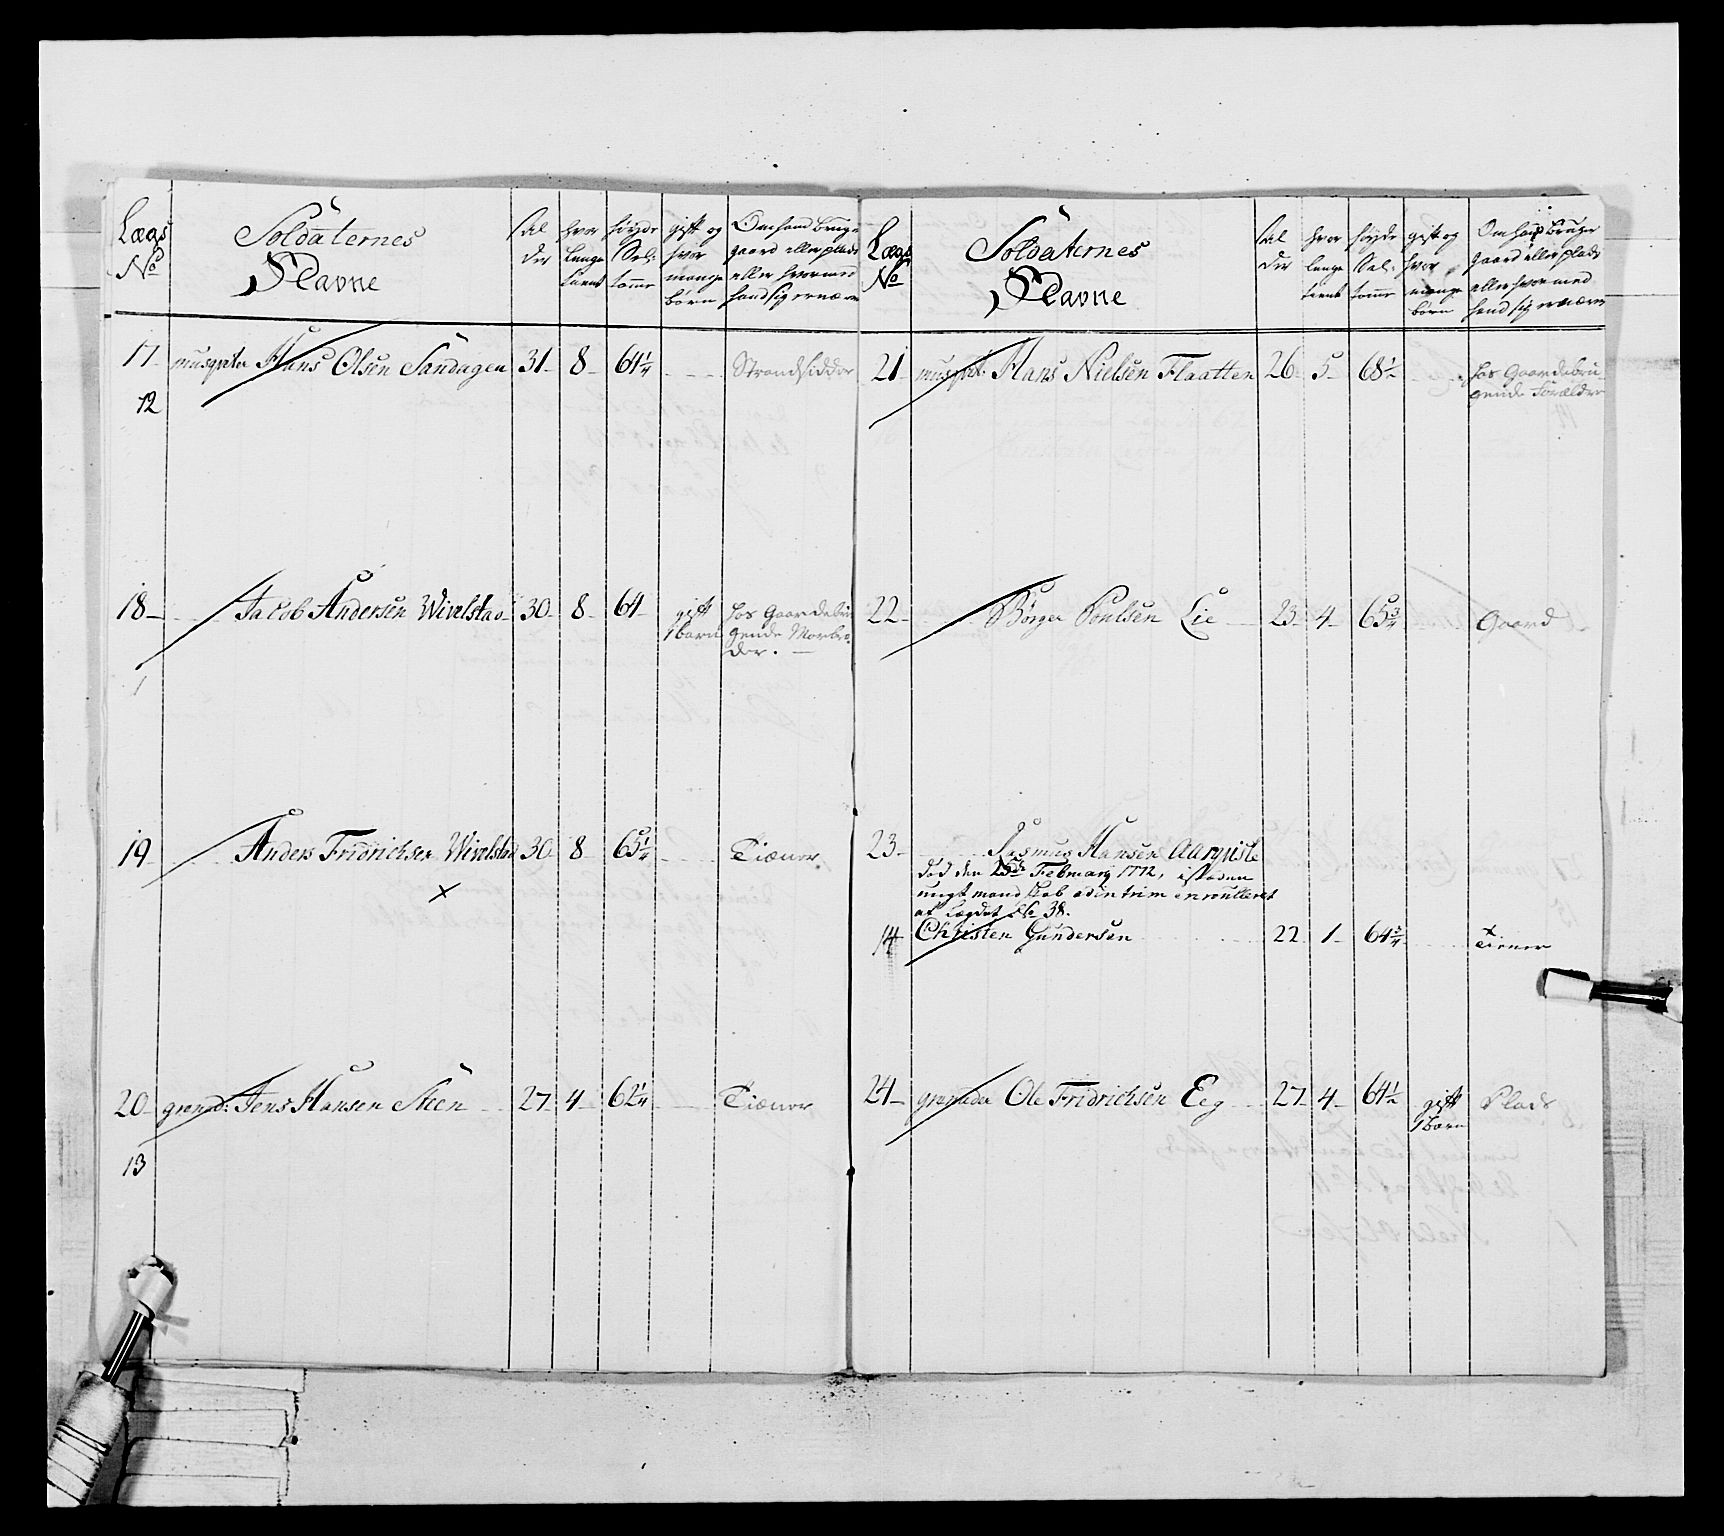 Lægs
No
Soldaternes
Navne
al
der
hvor
lenge
tient
høyde
Sel:
tomme
gift og
hvor
mange
børn
Om hand bruger
gaard eller plads
eller hvormed
hand sig ernærer
17 musqueter Hans Olsen Sandagen 31 8 61¼ Strandsidder
12
18 Jacob Andersen Wivelstad 30 8 64 gift 1 barn hos Gaardebru
gende Morbro
der.
1
19 Anders Fridrichsen Wivelstad 30 8 65¼ Tiæner
x
20 grenad: Jens Hansen Skien 27 4 62¼ Tiæner
13
Lægs
No
Soldaternes
Navne
al
der
hvor
lenge
tient
høyde
Sel:
tomme
gift og
hvor
mange
børn
Om hand bruger
gaard eller plads
eller hvormed
hand sig ernærer
21 musqvet: Hans Nielsen Flaatten 26 5 68½ hos Gaardebru
gende Forældre
22 Børger Povlsen Lie 23 4 65¾ Gaard
23 Rasmus Hansen Aarqvisle
død den Februarij 1772, i steden
ungt mandskab ad intrim enroulleret
af Lægdet No 38.
14 Christen Gundersen 22 1 64¾ Tiener
24 grenader Ole Fridrichsen Eeg 27 4 64½ gift 1 barn Plads